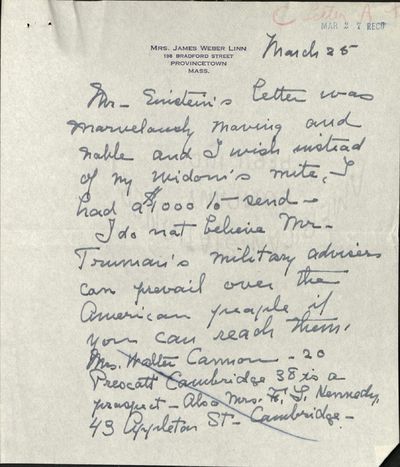 MAR 27 RECD
MRS. JAMES WEBER LINN
198 BRADFORD STREET
PROVINCETOWN
MASS.
March 25
Mr- Einstein's letter was
marvelously moving and
noble and I wish instead
of my widow's mite, I
had a $1000 to send-
I do not believe Mr-
Truman's military advisers
can prevail over the
American people if
you can reach them.
Mrs. Walter Cannon - 20
Prescott Cambridge 38 is a
prospect - Also Mrs. F. L. Kennedy,
43 Appleton St - Cambridge -